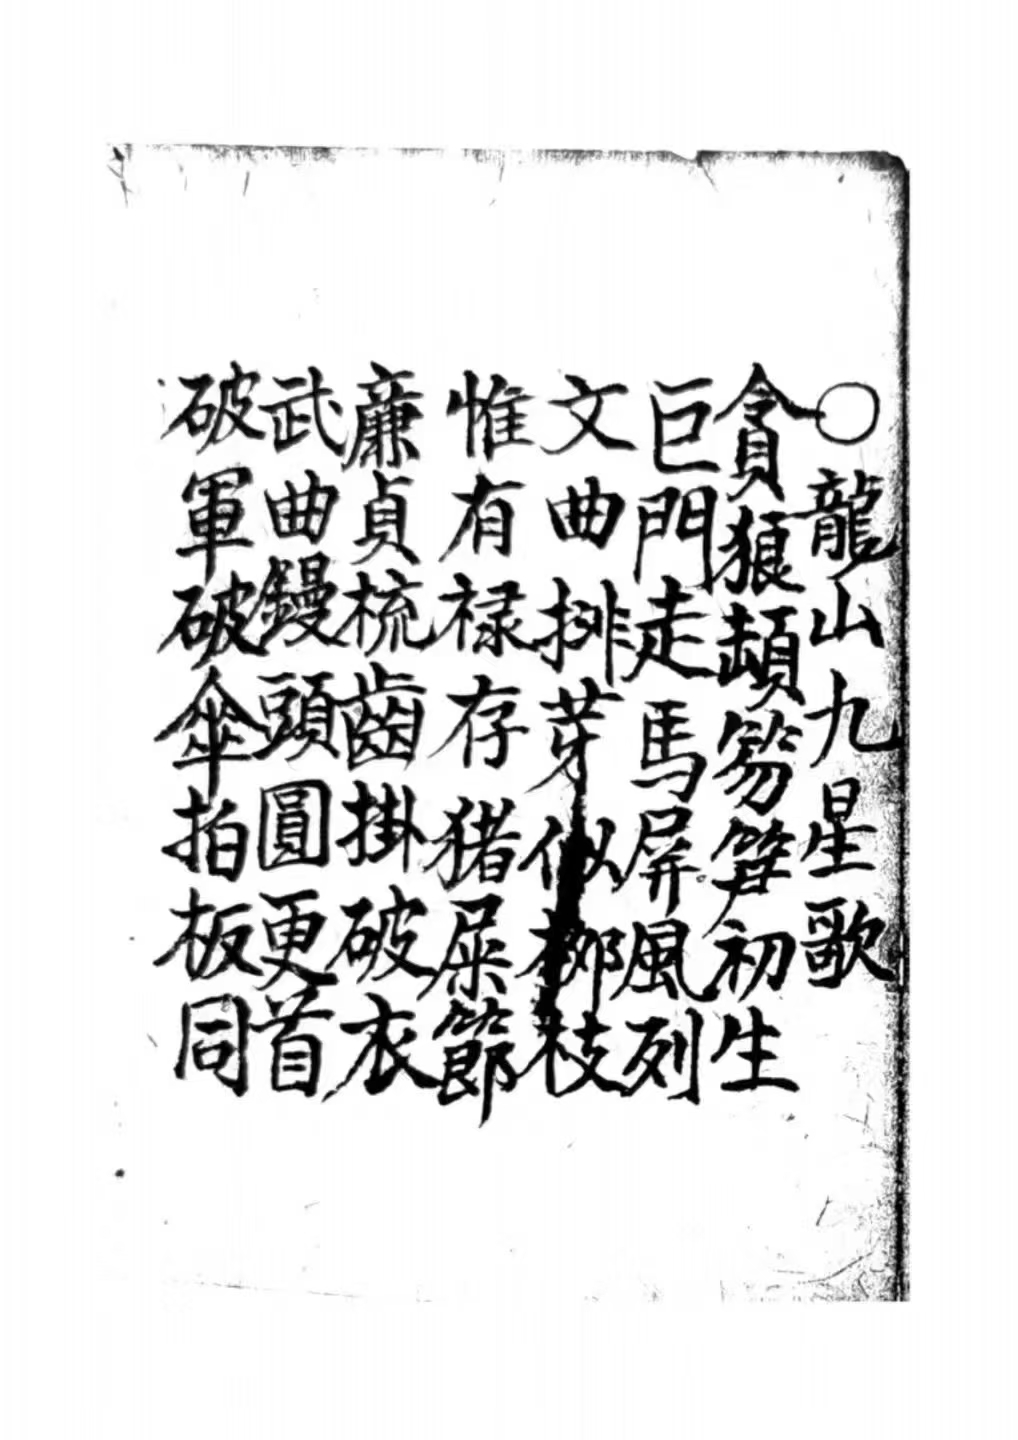 ○龍山九星歌
貪狼頓笏笋初生
巨門走馬屏風列
文曲排芽似柳枝
惟有禄存猪屎節
廉貞梳齒掛破衣
武曲鏝頭圓更首
破軍破傘拍板同